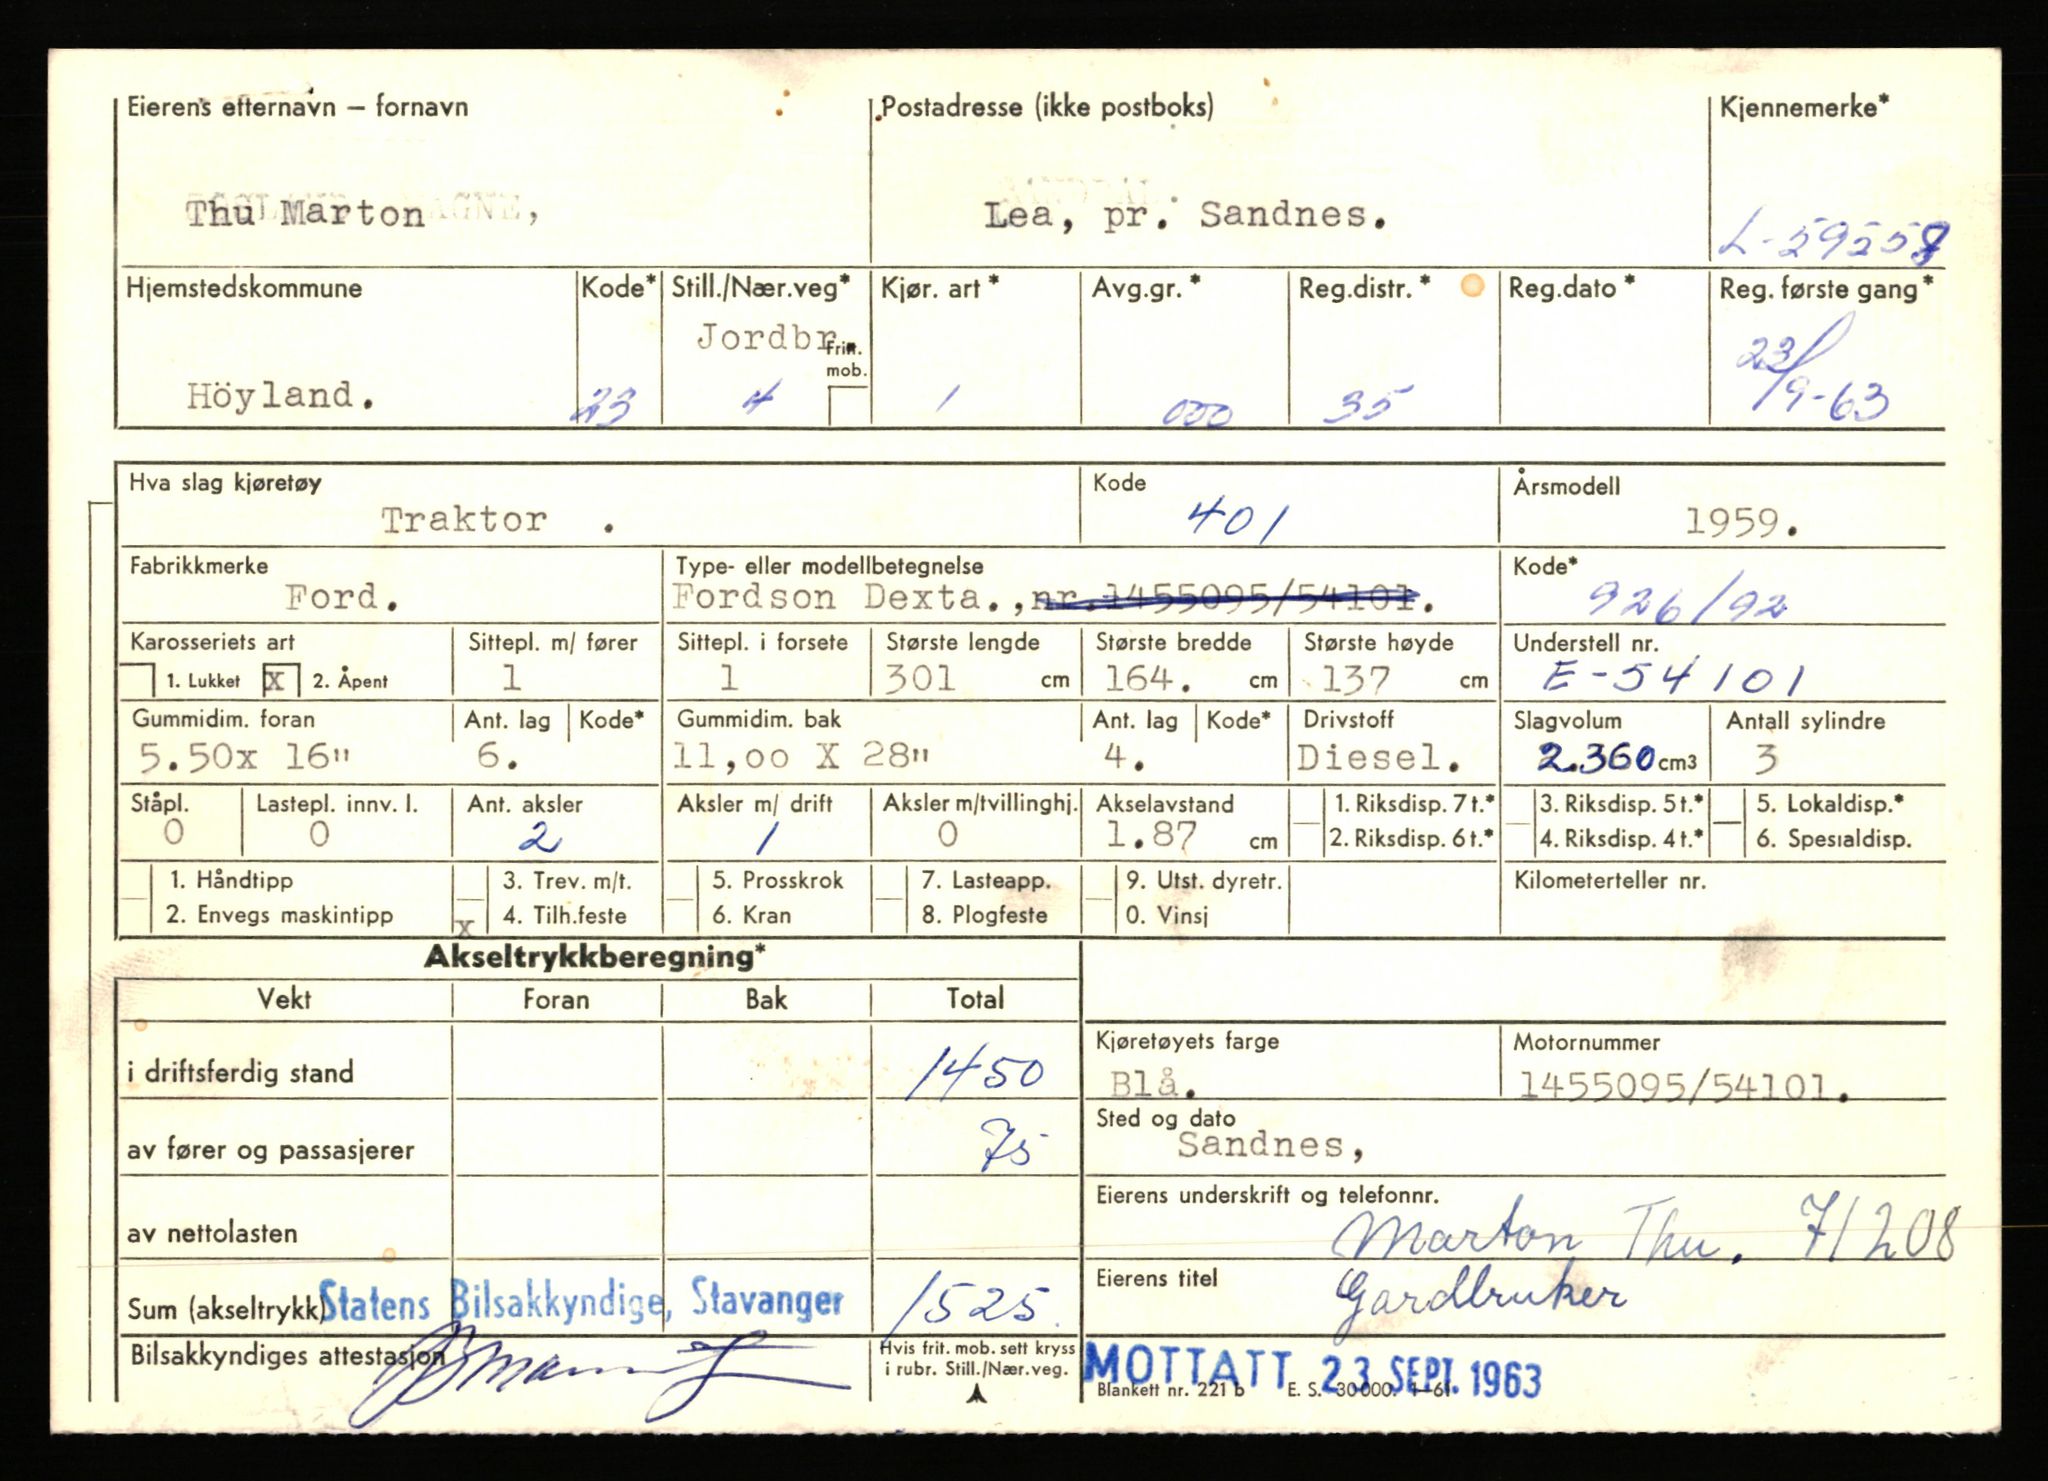 Eierens etternavn – fornavn Postadresse (ikke postboks) Kjennemerke*
Thu Marton Lea, pr. Sandnes. L-59558
Hjemstedskommune Kode* Still./Nær.veg* Kjør. art* Avg.gr.* Reg.distr.* Reg.dato* Reg. første gang*
Jordbr. Frit. mob.
Höyland. 23 4 1 000 35 23/9-63
Hva slag kjøretøy Kode Årsmodell
Traktor . 401 1959.
Fabrikkmerke Type- eller modellbetegnelse Kode*
Ford. Fordson Dexta.,nr.1455095/54101. 926/92
Karosseriets art Sittepl. m/ fører Sittepl. i forsete Største lengde Største bredde Største høyde Understell nr.
1. Lukket x 2. Åpent 1 1 301 cm 164. cm 137 cm E-54101
Gummidim. foran Ant. lag Kode* Gummidim. bak Ant. lag Kode* Drivstoff Slagvolum Antall sylindre
5.50x 16" 6. 11,00 X 28" 4. Diesel. 2.360 cm3 3
Ståpl. Lastepl. innv. l. Ant. aksler Aksler m/ drift Aksler m/tvillinghj. Akselavstand 1. Riksdisp. 7 t.* 3. Riksdisp. 5 t.* 5. Lokaldisp.*
0 0 2 1 0 1.87 cm 2. Riksdisp. 6 t.* 4. Riksdisp. 4 t.* 6. Spesialdisp.
1. Håndtipp 3. Trev. m/t. 5. Prosskrok 7. Lasteapp. 9. Utst. dyretr. Kilometerteller nr.
2. Envegs maskintipp x 4. Tilh.feste 6. Kran 8. Plogfeste 0. Vinsj
Akseltrykkberegning*
Vekt Foran Bak Total
Kjøretøyets farge Motornummer
i driftsferdig stand 1450 Blå. 1455095/54101.
Sted og dato
av fører og passasjerer 75 Sandnes,
Eierens underskrift og telefonnr.
av nettolasten Marton Thu. 71208
Eierens titel
Sum (akseltrykk) Statens Bilsakkyndige, Stavanger 1525 Gardbruker
Bilsakkyndiges attestasjon Hvis frit. mob. sett kryss i rubr. Still./Nær.veg. MOTTATT 23. SEPT. 1963
Blankett nr. 221 b E. S. 30000. 1-61